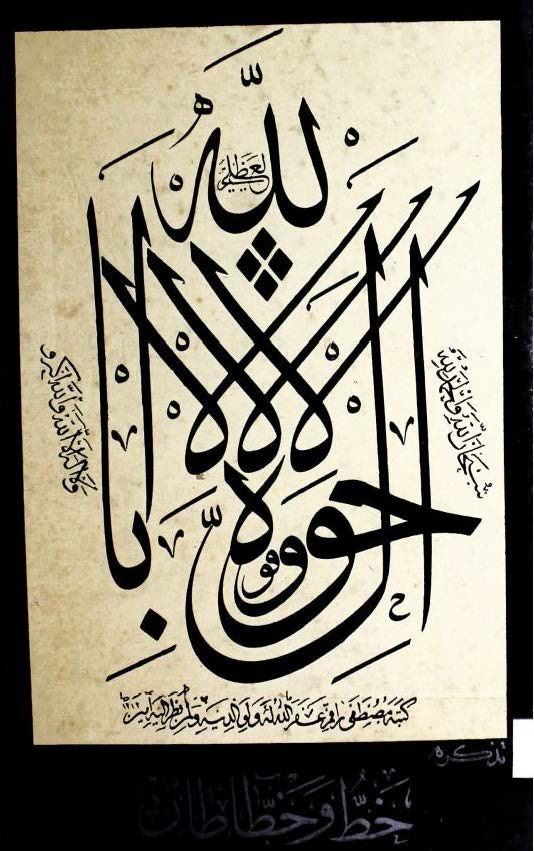 سبحان الله والحمد لله
ولا اله الا الله والله اكبر و
لا حول ولا قوة الا بالله العلي العظيم
كتبه مصطفى راقم غفر الله له ولوالديه ولمن نظر اليه آمين ١٢١٢
تذكره
خط و خطاطان